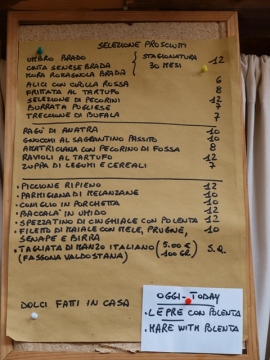 SELEZIONE PROSCIUTTI
UMBRO BRADO
CINTA SENESE BRADA
MORA ROMAGNOLA BRADA
STAGIONATURA
30 MESI
12
ALICI CON CIPOLLA ROSSA 6
FRITATA AL TARTUFO 8
SELEZIONE DI PECORINI 12
BURRATA PUGLIESE 7
TRECCIONE DI BUFALA 7
RAGÙ DI ANATRA 10
GNOCCHI AL SAGRANTINO PASSITO 10
AMATRICIANA CON PECORINO DI FOSSA 8
RAVIOLI AL TARTUFO 12
ZUPPA DI LEGUMI E CEREALI 7
• PICCIONE RIPIENO 12
• PARMIGIANA DI MELANZANE 10
• CONIGLIO IN PORCHETTA 10
• BACCALA' IN UMIDO 12
• SPEZZATINO DI CINGHIALE CON POLENTA 12
• FILETTO DI MAIALE CON MELE, PRUGNE, 10
SENAPE E BIRRA
• TAGLIATA DI MANZO ITALIANO (5.00 € S.Q.
(FASSONA VALDOSTANA) 100 GR.)
DOLCI FATTI IN CASA
OGGI-TODAY
• LEPRE CON POLENTA
• HARE WITH POLENTA